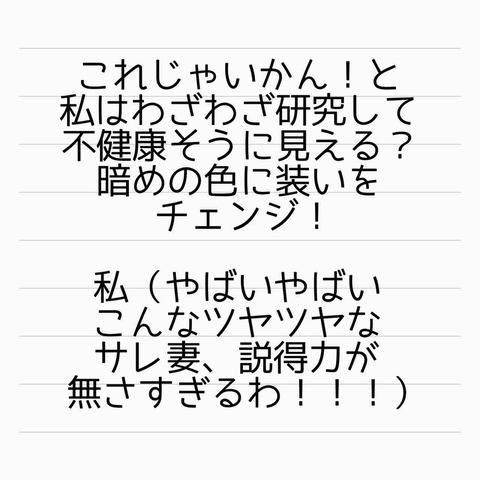 これじゃいかん！と
私はわざわざ研究して
不健康そうに見える？
暗めの色に装いを
チェンジ！
私（やばいやばい
こんなツヤツヤな
サレ妻、説得力が
無さすぎるわ！！！）